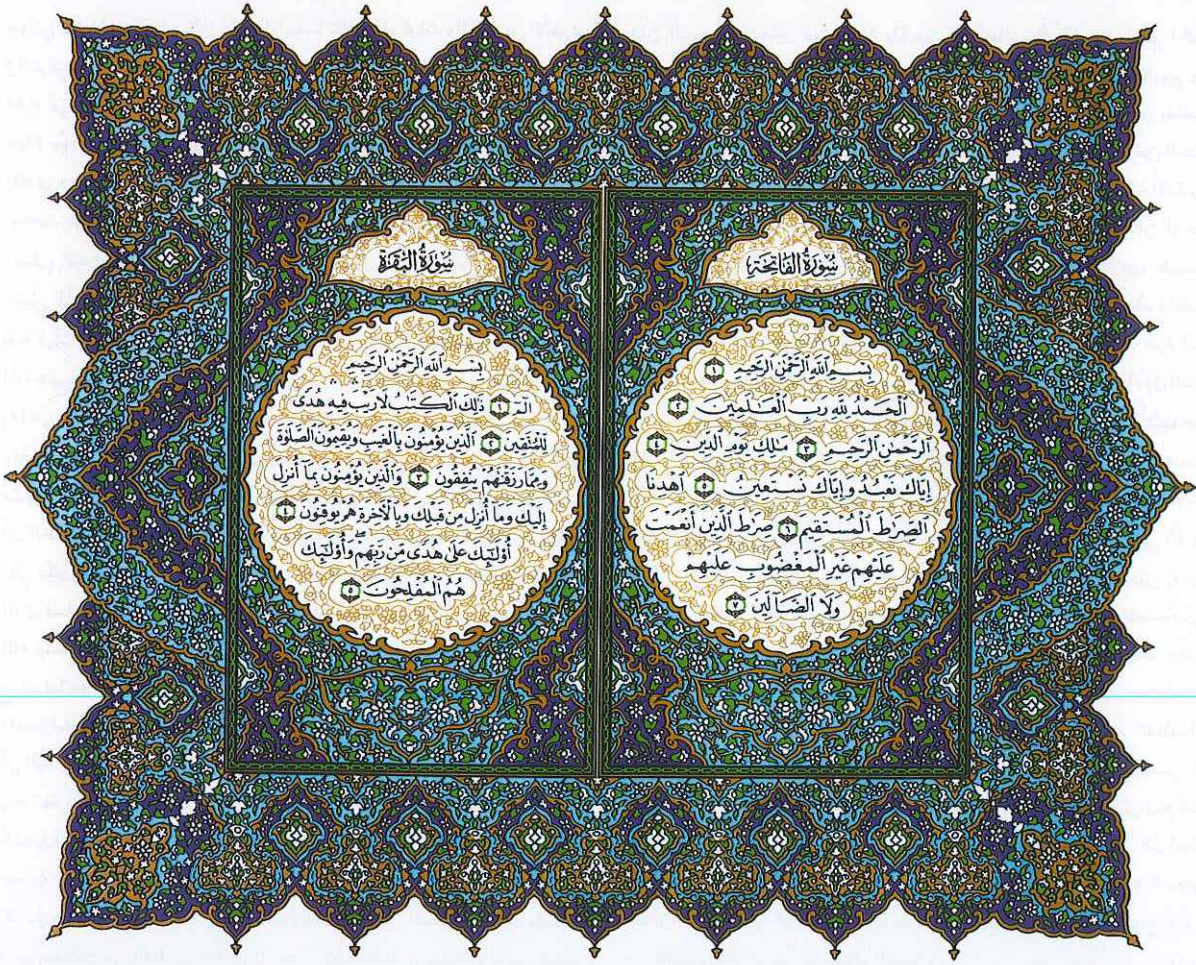 سُورَةُ الْفَاتِحَةِ
بِسْمِ اللَّهِ الرَّحْمَٰنِ الرَّحِيمِ ١
الْحَمْدُ لِلَّهِ رَبِّ الْعَالَمِينَ ٢
الرَّحْمَٰنِ الرَّحِيمِ ٣ مَالِكِ يَوْمِ الدِّينِ ٤
إِيَّاكَ نَعْبُدُ وَإِيَّاكَ نَسْتَعِينُ ٥ اهْدِنَا
الصِّرَاطَ الْمُسْتَقِيمَ ٦ صِرَاطَ الَّذِينَ أَنْعَمْتَ
عَلَيْهِمْ غَيْرِ الْمَغْضُوبِ عَلَيْهِمْ
وَلَا الضَّالِّينَ ٧
سُورَةُ الْبَقَرَةِ
بِسْمِ اللَّهِ الرَّحْمَٰنِ الرَّحِيمِ
الٓمٓ ١ ذَٰلِكَ الْكِتَابُ لَا رَيْبَ فِيهِ هُدًى
لِّلْمُتَّقِينَ ٢ الَّذِينَ يُؤْمِنُونَ بِالْغَيْبِ وَيُقِيمُونَ الصَّلَوٰةَ
وَمِمَّا رَزَقْنَاهُمْ يُنفِقُونَ ٣ وَالَّذِينَ يُؤْمِنُونَ بِمَا أُنزِلَ
إِلَيْكَ وَمَا أُنزِلَ مِن قَبْلِكَ وَبِالْآخِرَةِ هُمْ يُوقِنُونَ ٤
أُولَٰئِكَ عَلَىٰ هُدًى مِّن رَّبِّهِمْ ۖ وَأُولَٰئِكَ
هُمُ الْمُفْلِحُونَ ٥